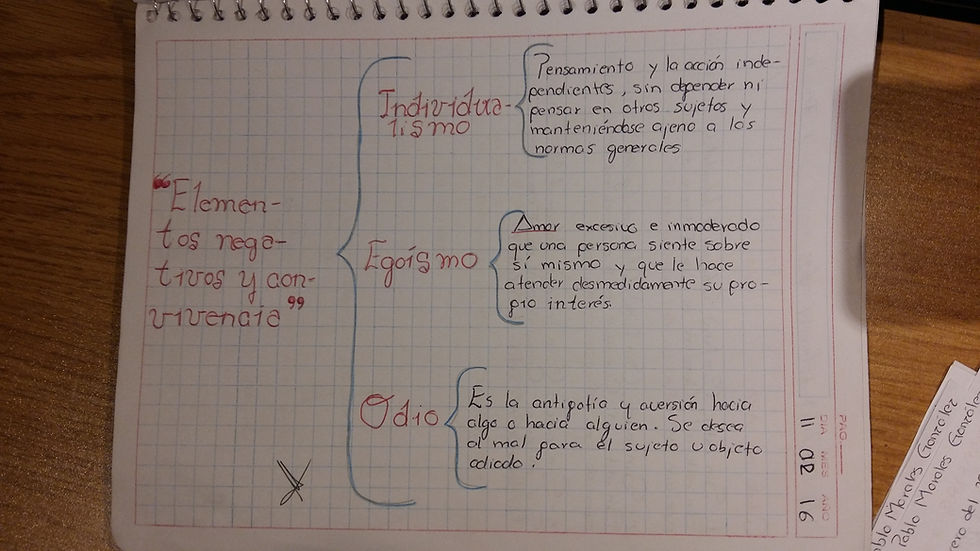 “Elemen-
tos nega-
tivos y con-
vivencia”
Individua-
lismo
Pensamiento y la acción inde-
pendientes, sin depender ni
pensar en otros sujetos y
manteniéndose ajeno a las
normas generales
Egoísmo
Amor excesivo e inmoderado
que una persona siente sobre
sí mismo y que le hace
atender desmedidamente su pro-
pio interés.
Odio
Es la antipatía y aversión hacia
algo o hacia alguien. Se desea
al mal para el sujeto u objeto
odiado.
PAG
DIA MES AÑO
11 02 16
blo Morales González
Pablo Morales González
ero del